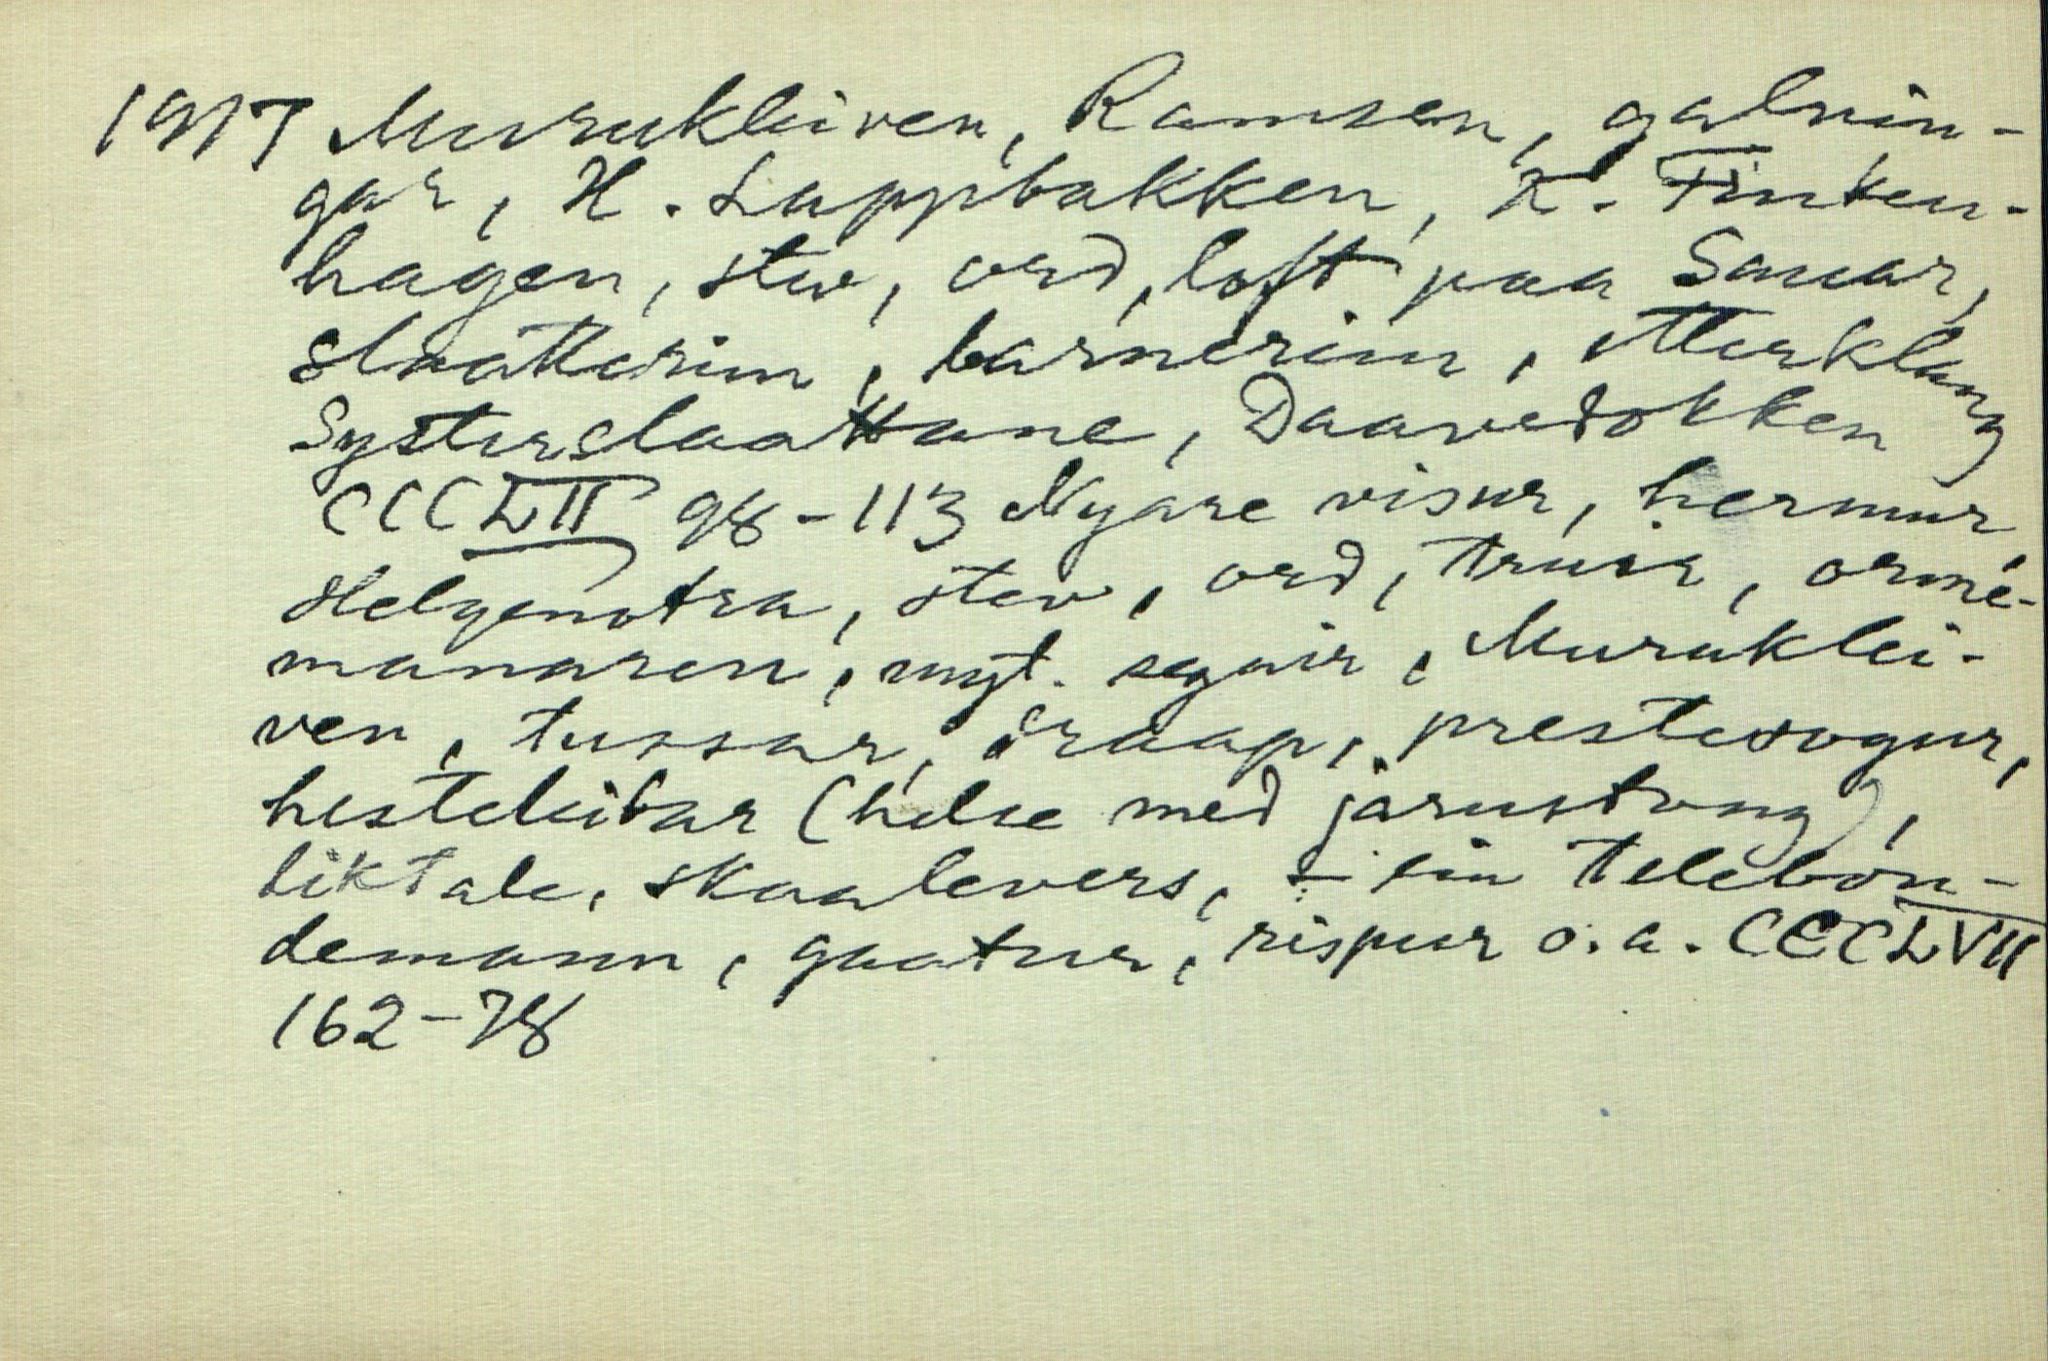 1917 Murukleiven, Ramsen, galnin-
gar, H. Lappbakken, K. Finken-
hagen, stev, ord, loft paa Sauar,
slaatterim, barnerim, etterklang
Systerslaattane, Daavedokken
CCCLII 98-113 Nyare visur, hermur,
Helgenotra, stev, ord, truir, orme-
manaren, myt. segnir, Muruklei-
ven, tussar, draap, prestesogur,
hesteleitar (helse med jarnstong),
liktale, skaalevers, ein telebon-
demann, gaatur, rispur o.a. CCCLVII
162-78